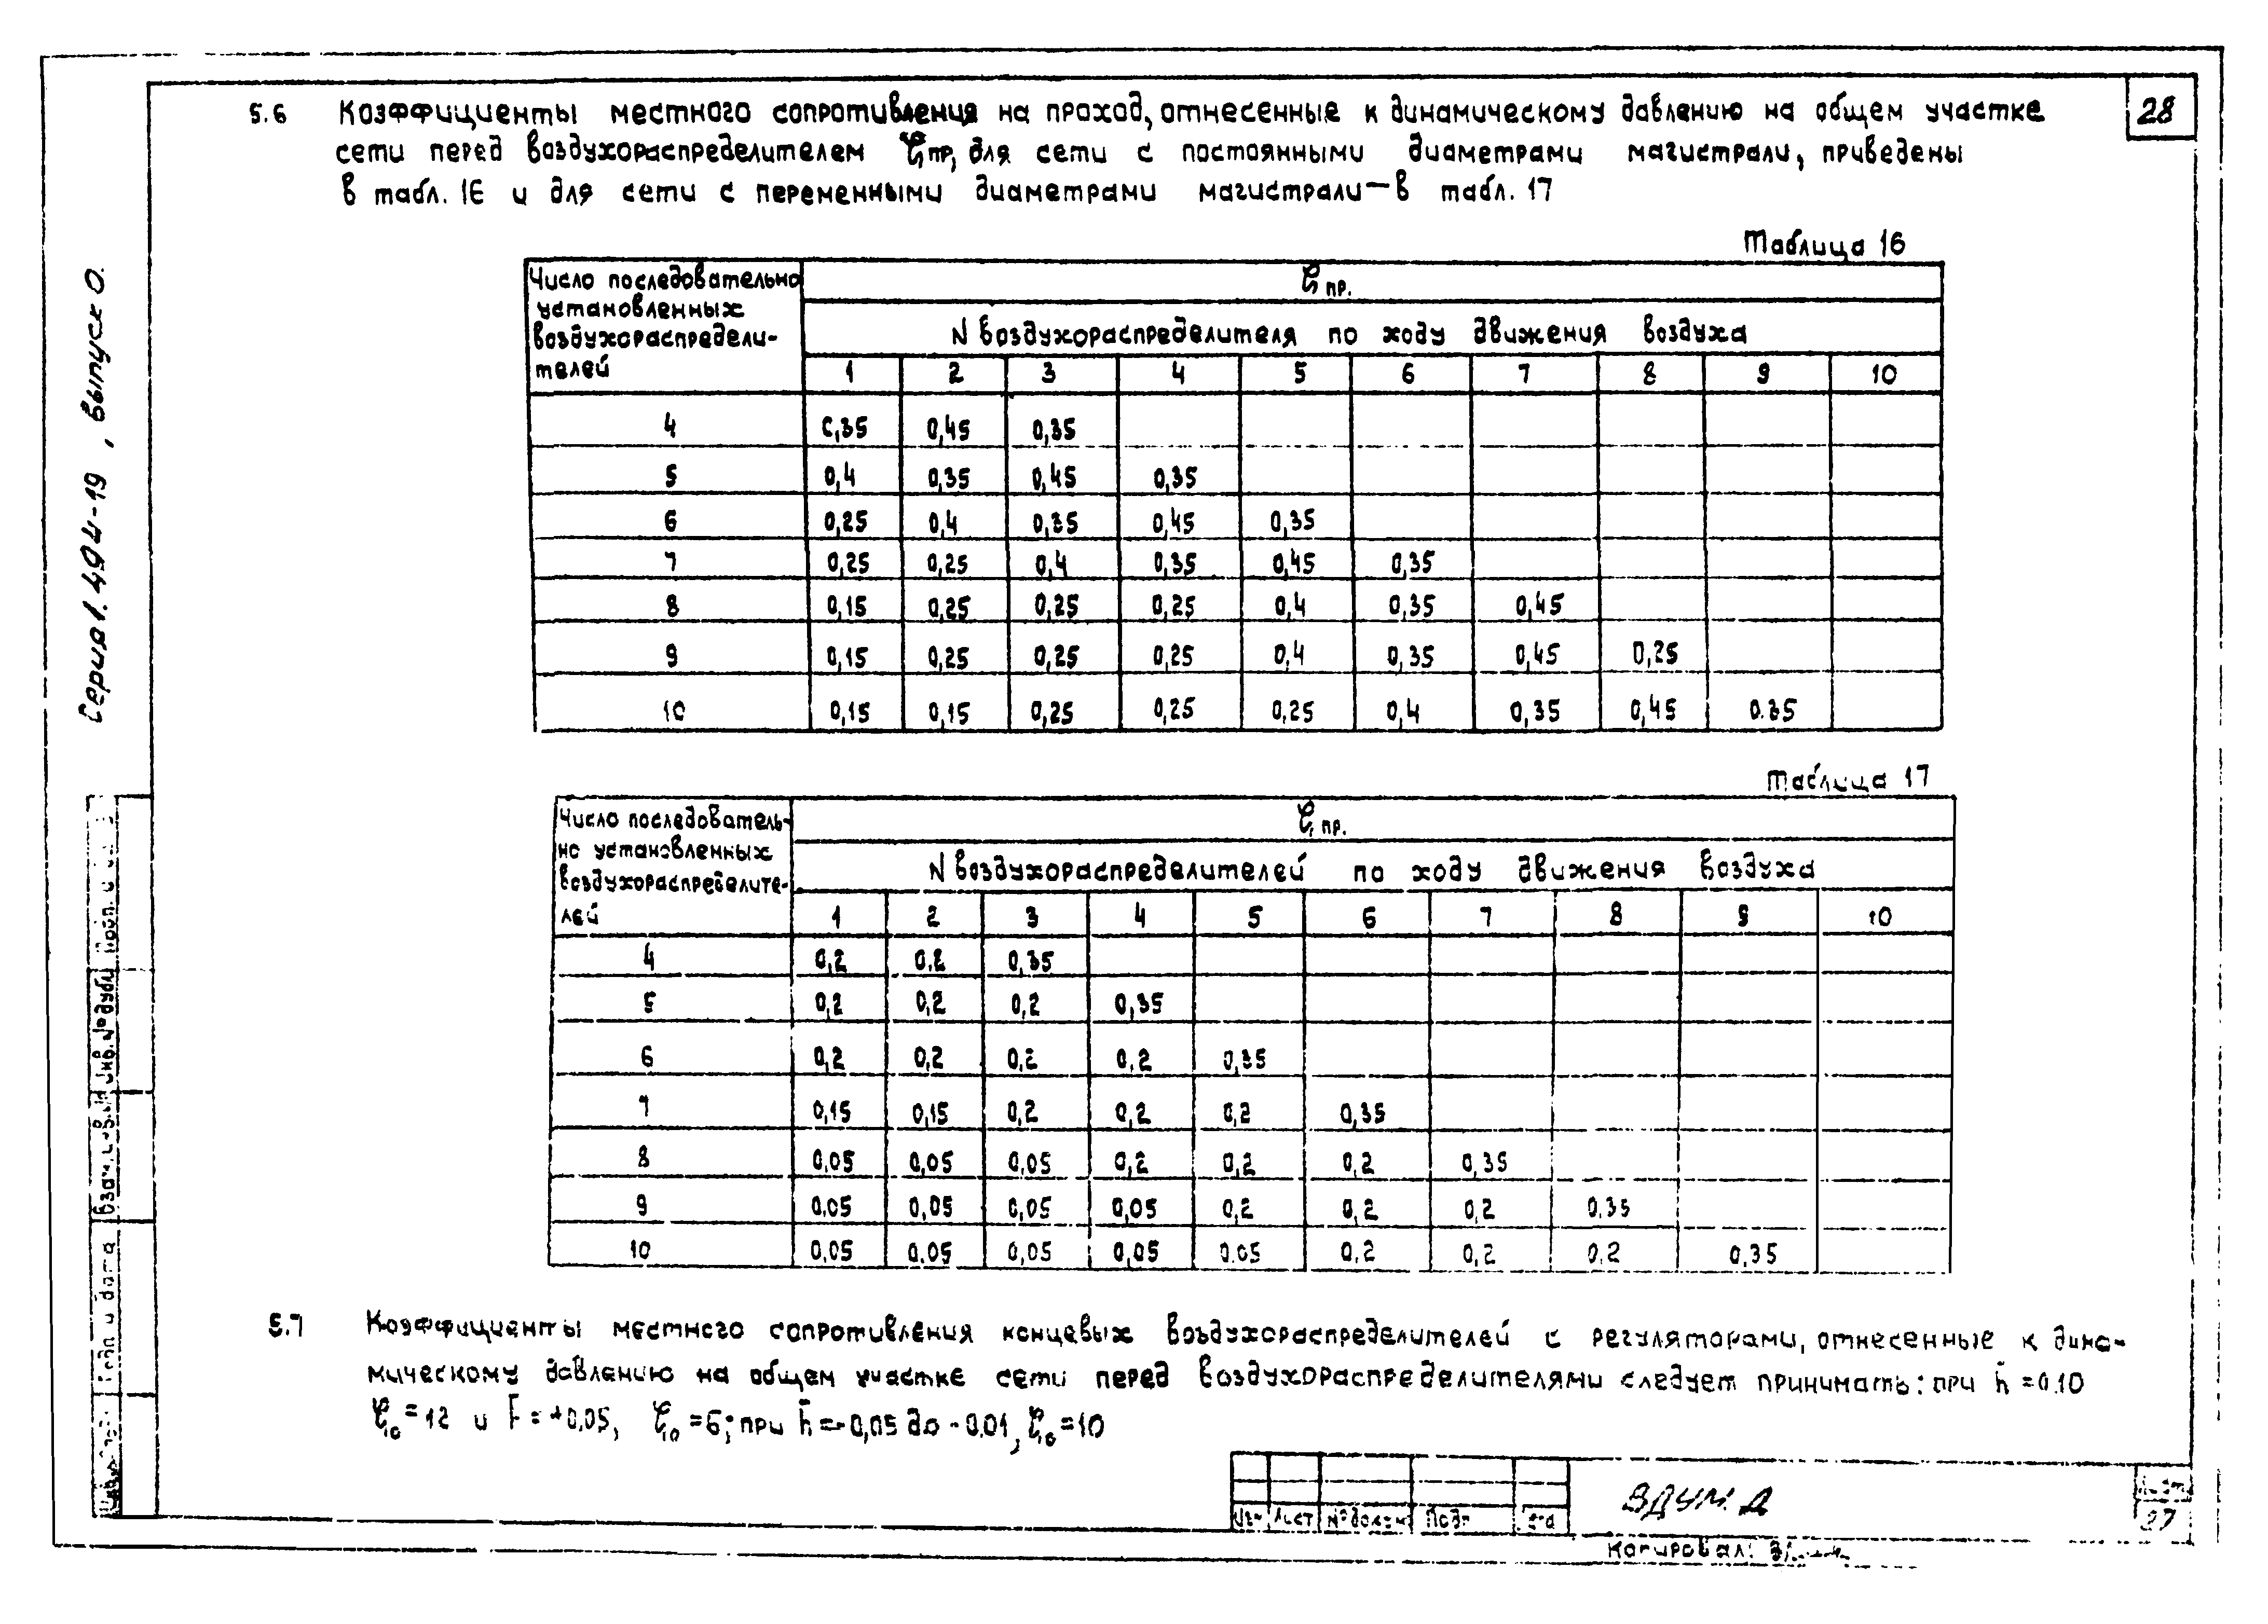 28
5.6 Коэффициенты местного сопротивления на проход, отнесенные к динамическому давлению на общем участке
сети перед воздухораспределителем ζпр, для сети с постоянными диаметрами магистрали, приведены
в табл. 16 и для сети с переменными диаметрами магистрали — в табл. 17
Серия 1.494-19, выпуск 0.
Таблица 16
Число последовательно
установленных
воздухораспредели-
телей
ζпр.
N воздухораспределителя по ходу движения воздуха
1 2 3 4 5 6 7 8 9 10
4 0,35 0,45 0,35
5 0,4 0,35 0,45 0,35
6 0,25 0,4 0,35 0,45 0,35
7 0,25 0,25 0,4 0,35 0,45 0,35
8 0,15 0,25 0,25 0,25 0,4 0,35 0,45
9 0,15 0,25 0,25 0,25 0,4 0,35 0,45 0,25
10 0,15 0,15 0,25 0,25 0,25 0,4 0,35 0,45 0.35
Таблица 17
Число последователь-
но установленных
воздухораспределите-
лей
ζпр.
N воздухораспределителей по ходу движения воздуха
1 2 3 4 5 6 7 8 9 10
4 0,2 0.2 0,35
5 0,2 0,2 0,2 0,35
6 0,2 0,2 0,2 0,2 0,35
7 0,15 0,15 0,2 0,2 0,2 0,35
8 0,05 0,05 0,05 0,2 0,2 0,2 0,35
9 0.05 0,05 0,05 0,05 0,2 0,2 0,2 0,35
10 0,05 0,05 0,05 0,05 0.05 0,2 0,2 0,2 0,35
5.7 Коэффициенты местного сопротивления концевых воздухораспределителей с регуляторами, отнесенные к дина-
мическому давлению на общем участке сети перед воздухораспределителями следует принимать: при h̄ = 0.10
ζо = 12 и = +0,05, ζо = 6; при h̄ = -0,05 до -0.01, ζо = 10
Инв.№ дубл.
Взам.инв.№
Подп и дата
Лист № докум Подп
ВДУМ. Д
Лист
27
Копировал: